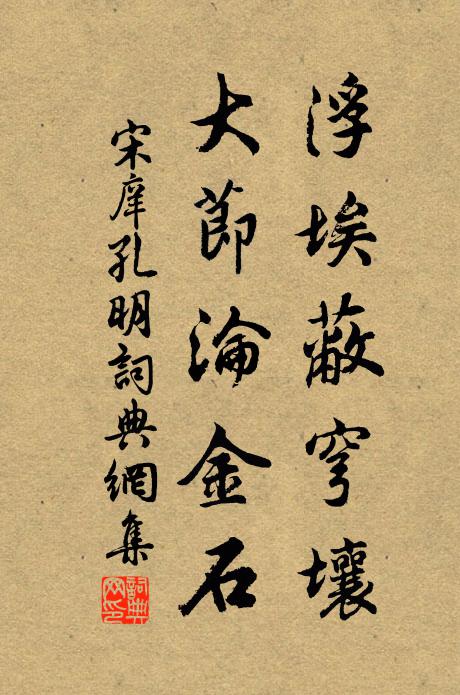 浮埃蔽穹壤
大節淪金石
宋庠孔明詞典網集
詞典网印